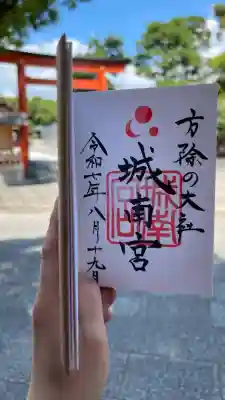 方除の大社
城南宮
令和七年八月十九日